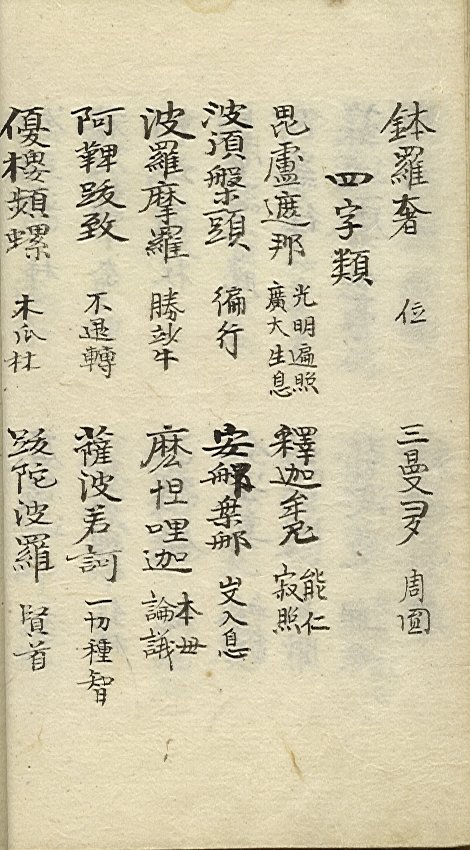 鉢羅奢　位　三曼多　周圓
四字類
毘盧遮那　光明遍照　廣大生息　釋迦牟尼　能仁　寂照
波須槃頭　徧行　安那槃那　出入息
波羅摩羅　勝妙牛　麼怛哩迦　本母　論議
阿鞞跋致　不退轉　薩波若訶　一切種智
優樓頻螺　木瓜林　跋陀波羅　賢首